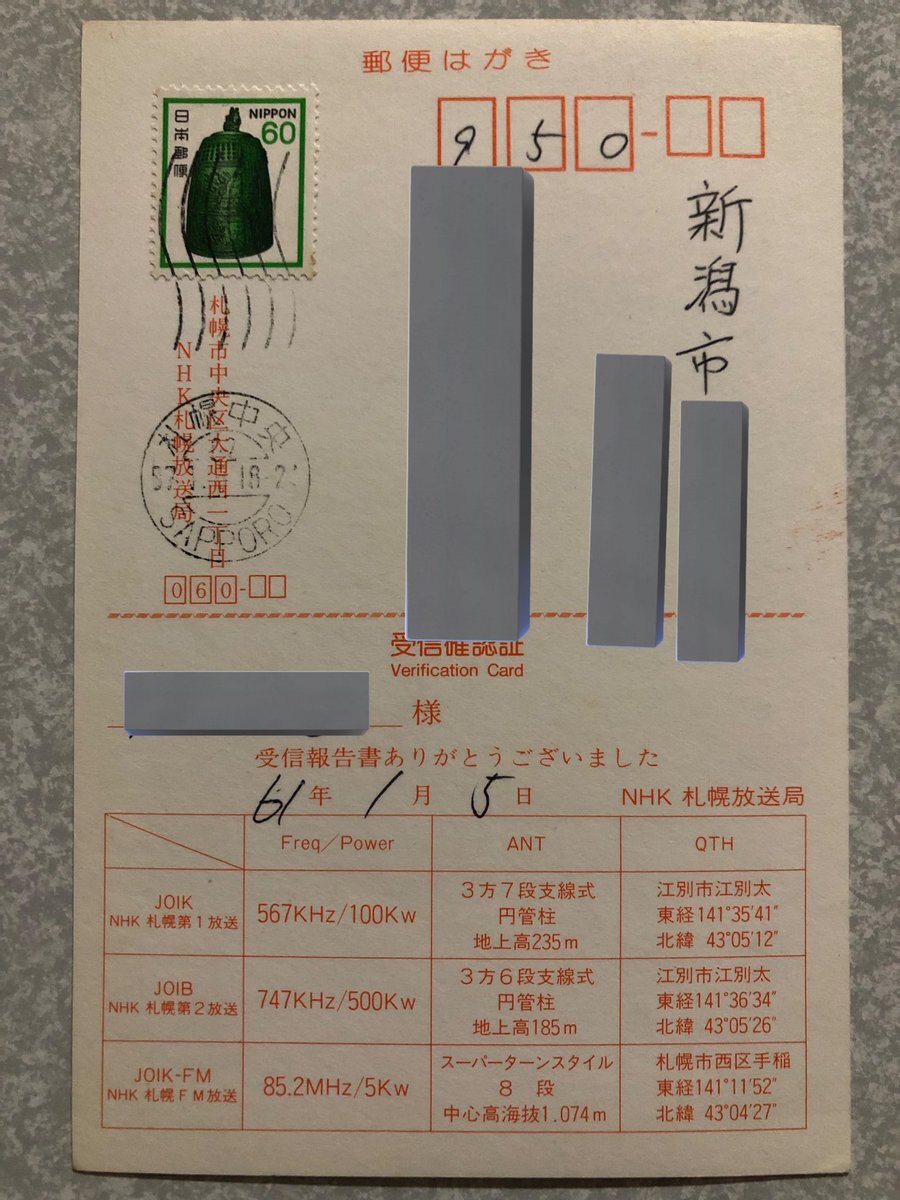 郵便はがき
日本郵便
NIPPON
60
950-
新潟市
札幌市中央区大通西一丁目
NHK札幌放送局
札幌中央
SAPPORO
060-
受信確認証
Verification Card
様
受信報告書ありがとうございました
61年 1月 5日 NHK 札幌放送局
Freq/Power ANT QTH
JOIK
NHK 札幌第1放送
567KHz/100Kw
3方7段支線式
円管柱
地上高235m
江別市江別太
東経141°35′41″
北緯 43°05′12″
JOIB
NHK 札幌第2放送
747KHz/500Kw
3方6段支線式
円管柱
地上高185m
江別市江別太
東経141°36′34″
北緯 43°05′26″
JOIK-FM
NHK 札幌FM放送
85.2MHz/5Kw
スーパーターンスタイル
8 段
中心高海抜1.074m
札幌市西区手稲
東経141°11′52″
北緯 43°04′27″